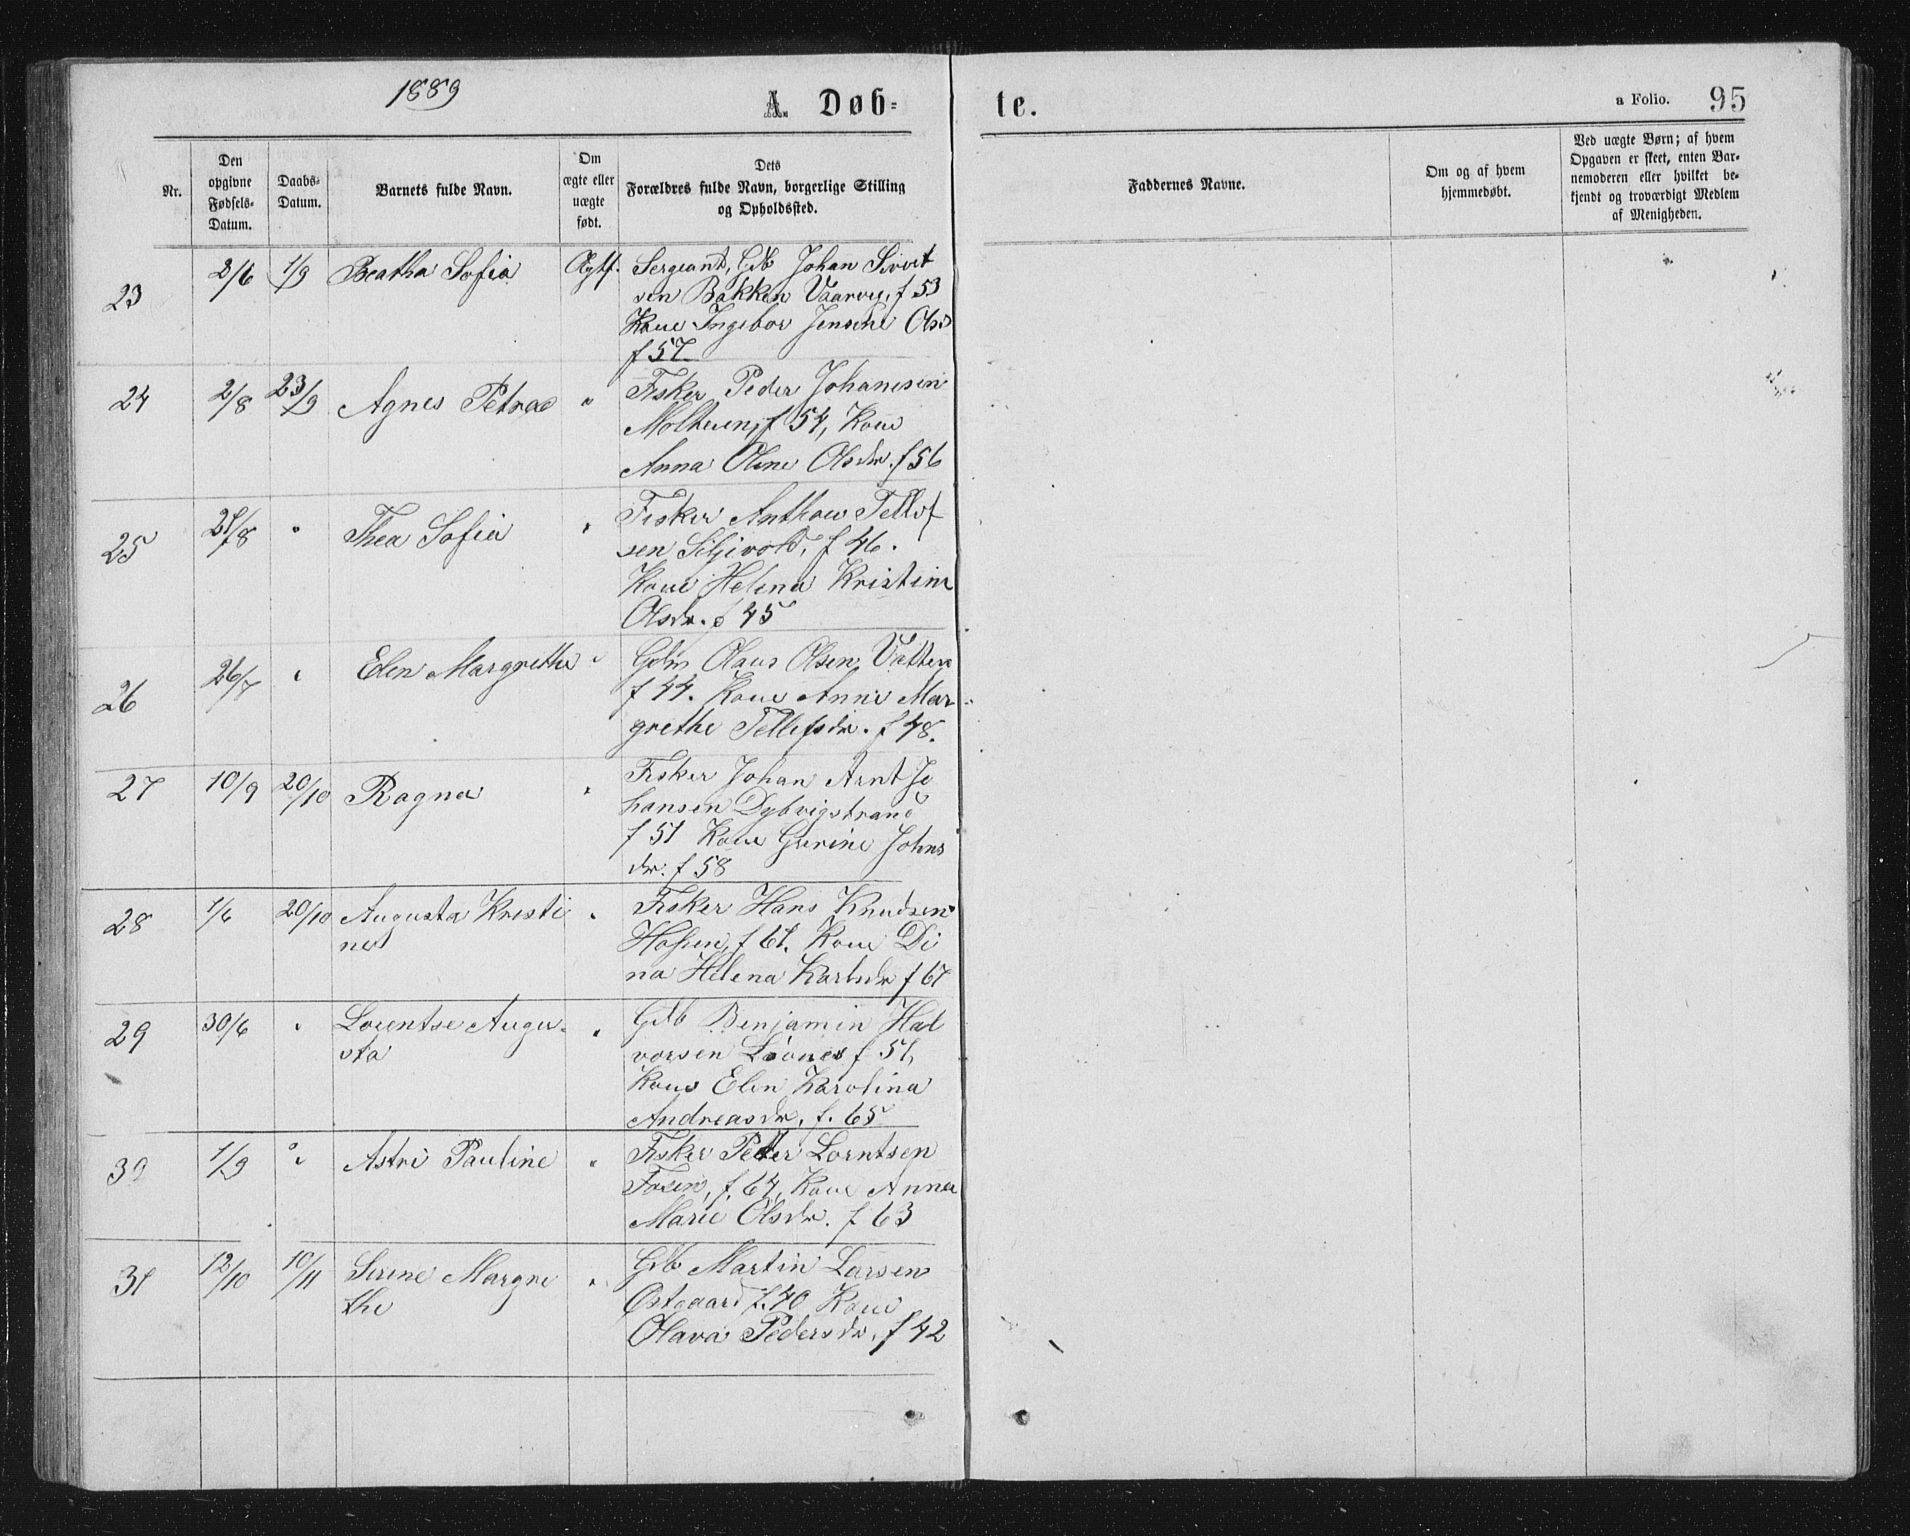 1889
A. Døb-
te.
a Folio. 95
Nr.
Den opgivne Fødsels-Datum.
Daabs-Datum.
Barnets fulde Navn.
Om ægte eller uægte født.
Dets Forældres fulde Navn, borgerlige Stilling og Opholdssted.
Faddernes Navne.
Om og af hvem hjemmedøbt.
Ved uægte Børn; af hvem
Opgaven er skeet, enten Bar-
nemoderen eller hvilket be-
kjendt og troværdigt Medlem
af Menigheden.
23 2/6 1/9 Beatha Sofia Ægtf. Sergeant, Gdb Johan Sivert
sen Bakken Vaarvig, f 53
Kone Ingebor Jensine Olsd
f 57
24 2/8 23/9 Agnes Petrea " Fisker Peder Johannesen
f 54, Kone
Anna Oline Olsdr. f 56
25 21/8 " Thea Sofia " Fisker Anthon Tellef
sen Seljevold, f 46.
Kone Helena Kristine
Olsdr. f 45
26 26/7 " Elen Margrethe " Gdm Olaus Olsen, Vatten
f 44. Kone Anne Mar-
grethe Tellefsdr. f 48.
27 10/9 20/10 Ragna " Fisker Johan Arnt Jo
hansen Dybvigstrand
f 51 Kone Gurine Johns
dr. f 58
28 1/6 20/10 Augusta Kristi " Fisker Hans Knudsen
ne Hofsen, f 61. Kone Di
na Helena Karlsdr f 67
29 30/6 " Lorentse Augu- " Gdb Benjamin Hal
sta vorsen Løvnes f 51,
Kone Elen Karolina
Andreasdr, f. 65
30 1/9 " Astri Pauline " Fisker Petter Lorntsen
Fosen, f. 64, Kone Anna
Marie Olsdr. f 63
31 12/10 10/11 Serene Margre " Gdb Martin Larsen
the Østgaard f. 40 Kone
Olava Pedersdr, f 42